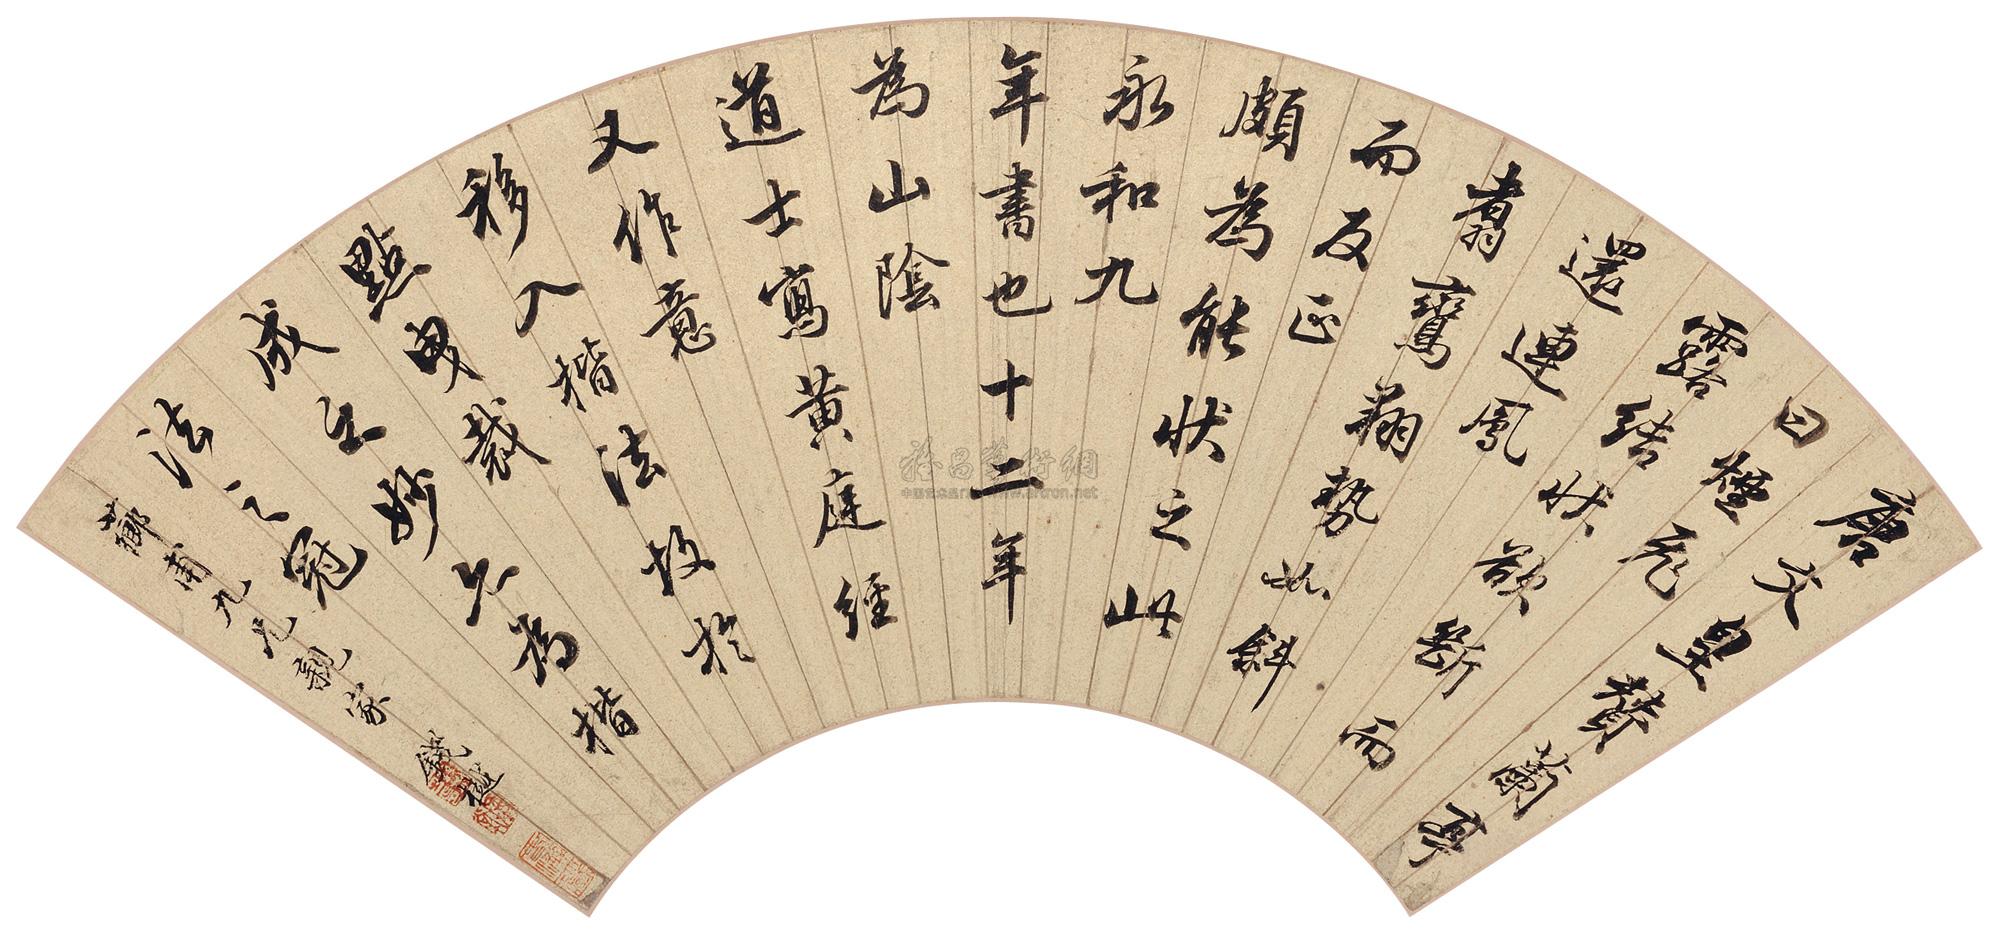 唐文皇贊蘭亭
曰煙霏
露結狀欲斷而
還連鳳
翥鸞翔勢如斜
而反正
頗為能狀之此
永和九
年書也十二年
為山陰
道士寫黃庭經
又作意
移入楷法故於
點曳裁
成之妙為楷
法之冠
薌甫九兄親家 錢樾